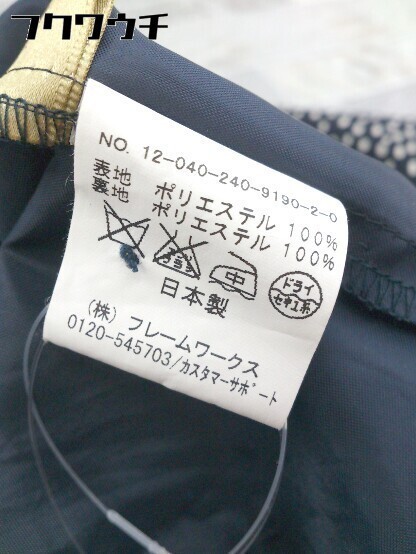 フクウウチ
NO. 12-040-240-9190-2-0
表地 ポリエステル 100%
裏地 ポリエステル 100%
エンソ サラシ 中 ドライ セキユ系
日本製
(株) フレームワークス
0120-545703/カスタマーサポート